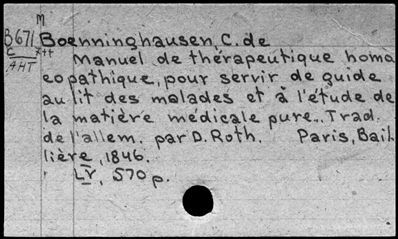 M
B671 Boenninghausen, C. de
C x++ Manuel de thérapeutique homa
AHT eopathique, pour servir de guide
au lit des malades et à l'étude de
la matière médicale pure... Trad.
de l'allem. par D. Roth. Paris, Bail
lière, 1846.
LV, 570 p.